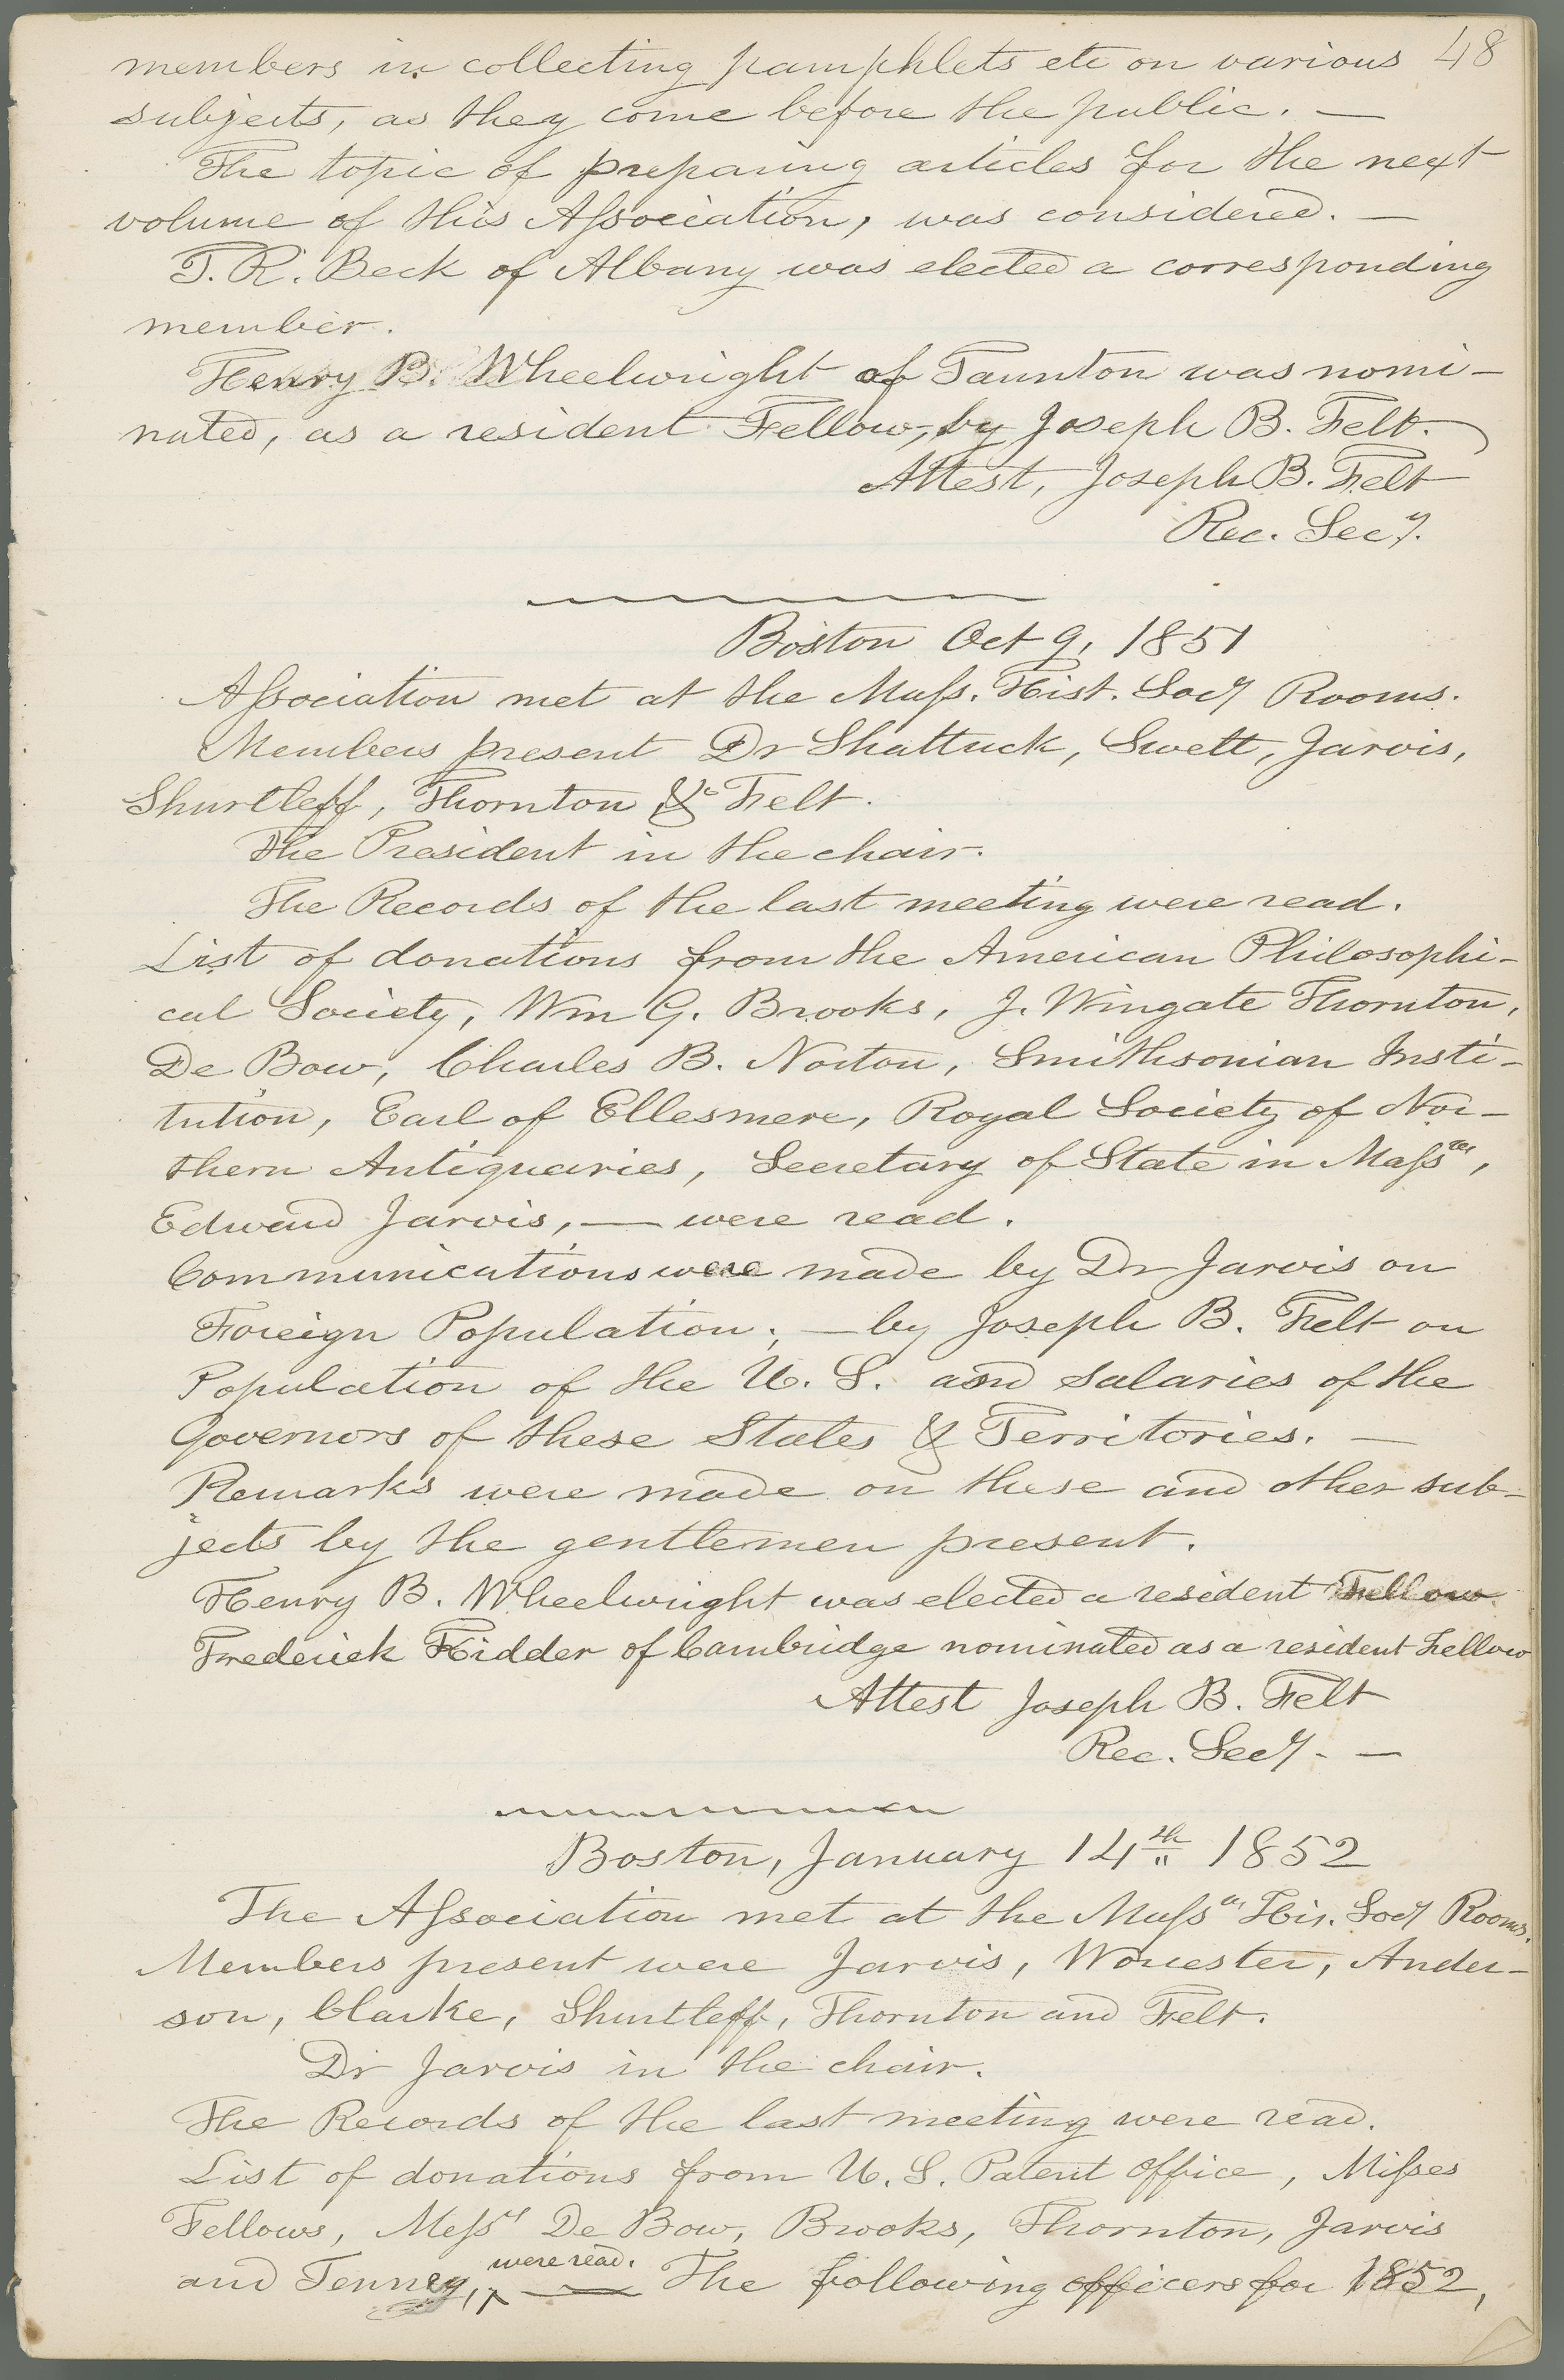 members in collecting pamphlets etc on various 48
subjects, as they come before the public. —
The topic of preparing articles for the next
volume of this Aſsociation, was considered. —
T. R. Beck of Albany was elected a corresponding
member.
Henry B. Wheelwright of Taunton was nomi-
nated, as a resident Fellow, by Joseph B. Felt.
Attest, Joseph B. Felt
Rec. Secy.
Boston Oct 9, 1851
Aſsociation met at the Maſs. Hist. Socy Rooms.
Members present Dr Shattuck, Swett, Jarvis,
Shurtleff, Thornton & Felt.
The President in the chair.
The Records of the last meeting were read.
List of donations from the American Philosophi-
cal Society, Wm G. Brooks, J. Wingate Thornton,
De Bow, Charles B. Norton, Smithsonian Insti-
tution, Earl of Ellesmere, Royal Society of Nor-
thern Antiquaries, Secretary of State in Maſsts,
Edward Jarvis, — were read.
Communications were made by Dr Jarvis on
Foreign Population; — by Joseph B. Felt on
Population of the U. S. and salaries of the
Governors of these States & Territories. —
Remarks were made on these and other sub-
jects by the gentlemen present.
Henry B. Wheelwright was elected a resident Fellow.
Frederick Kidder of Cambridge nominated as a resident Fellow
Attest Joseph B. Felt
Rec. Secy. —
Boston, January 14th 1852
The Aſsociation met at the Maſsts His. Socy Rooms.
Members present were Jarvis, Worcester, Ander-
son, Clarke, Shurtleff, Thornton and Felt.
Dr Jarvis in the chair.
The Records of the last meeting were read.
List of donations from U. S. Patent Office, Miſses
Fellows, Meſsrs De Bow, Brooks, Thornton, Jarvis
and Tenney, were read. — The following officers for 1852,